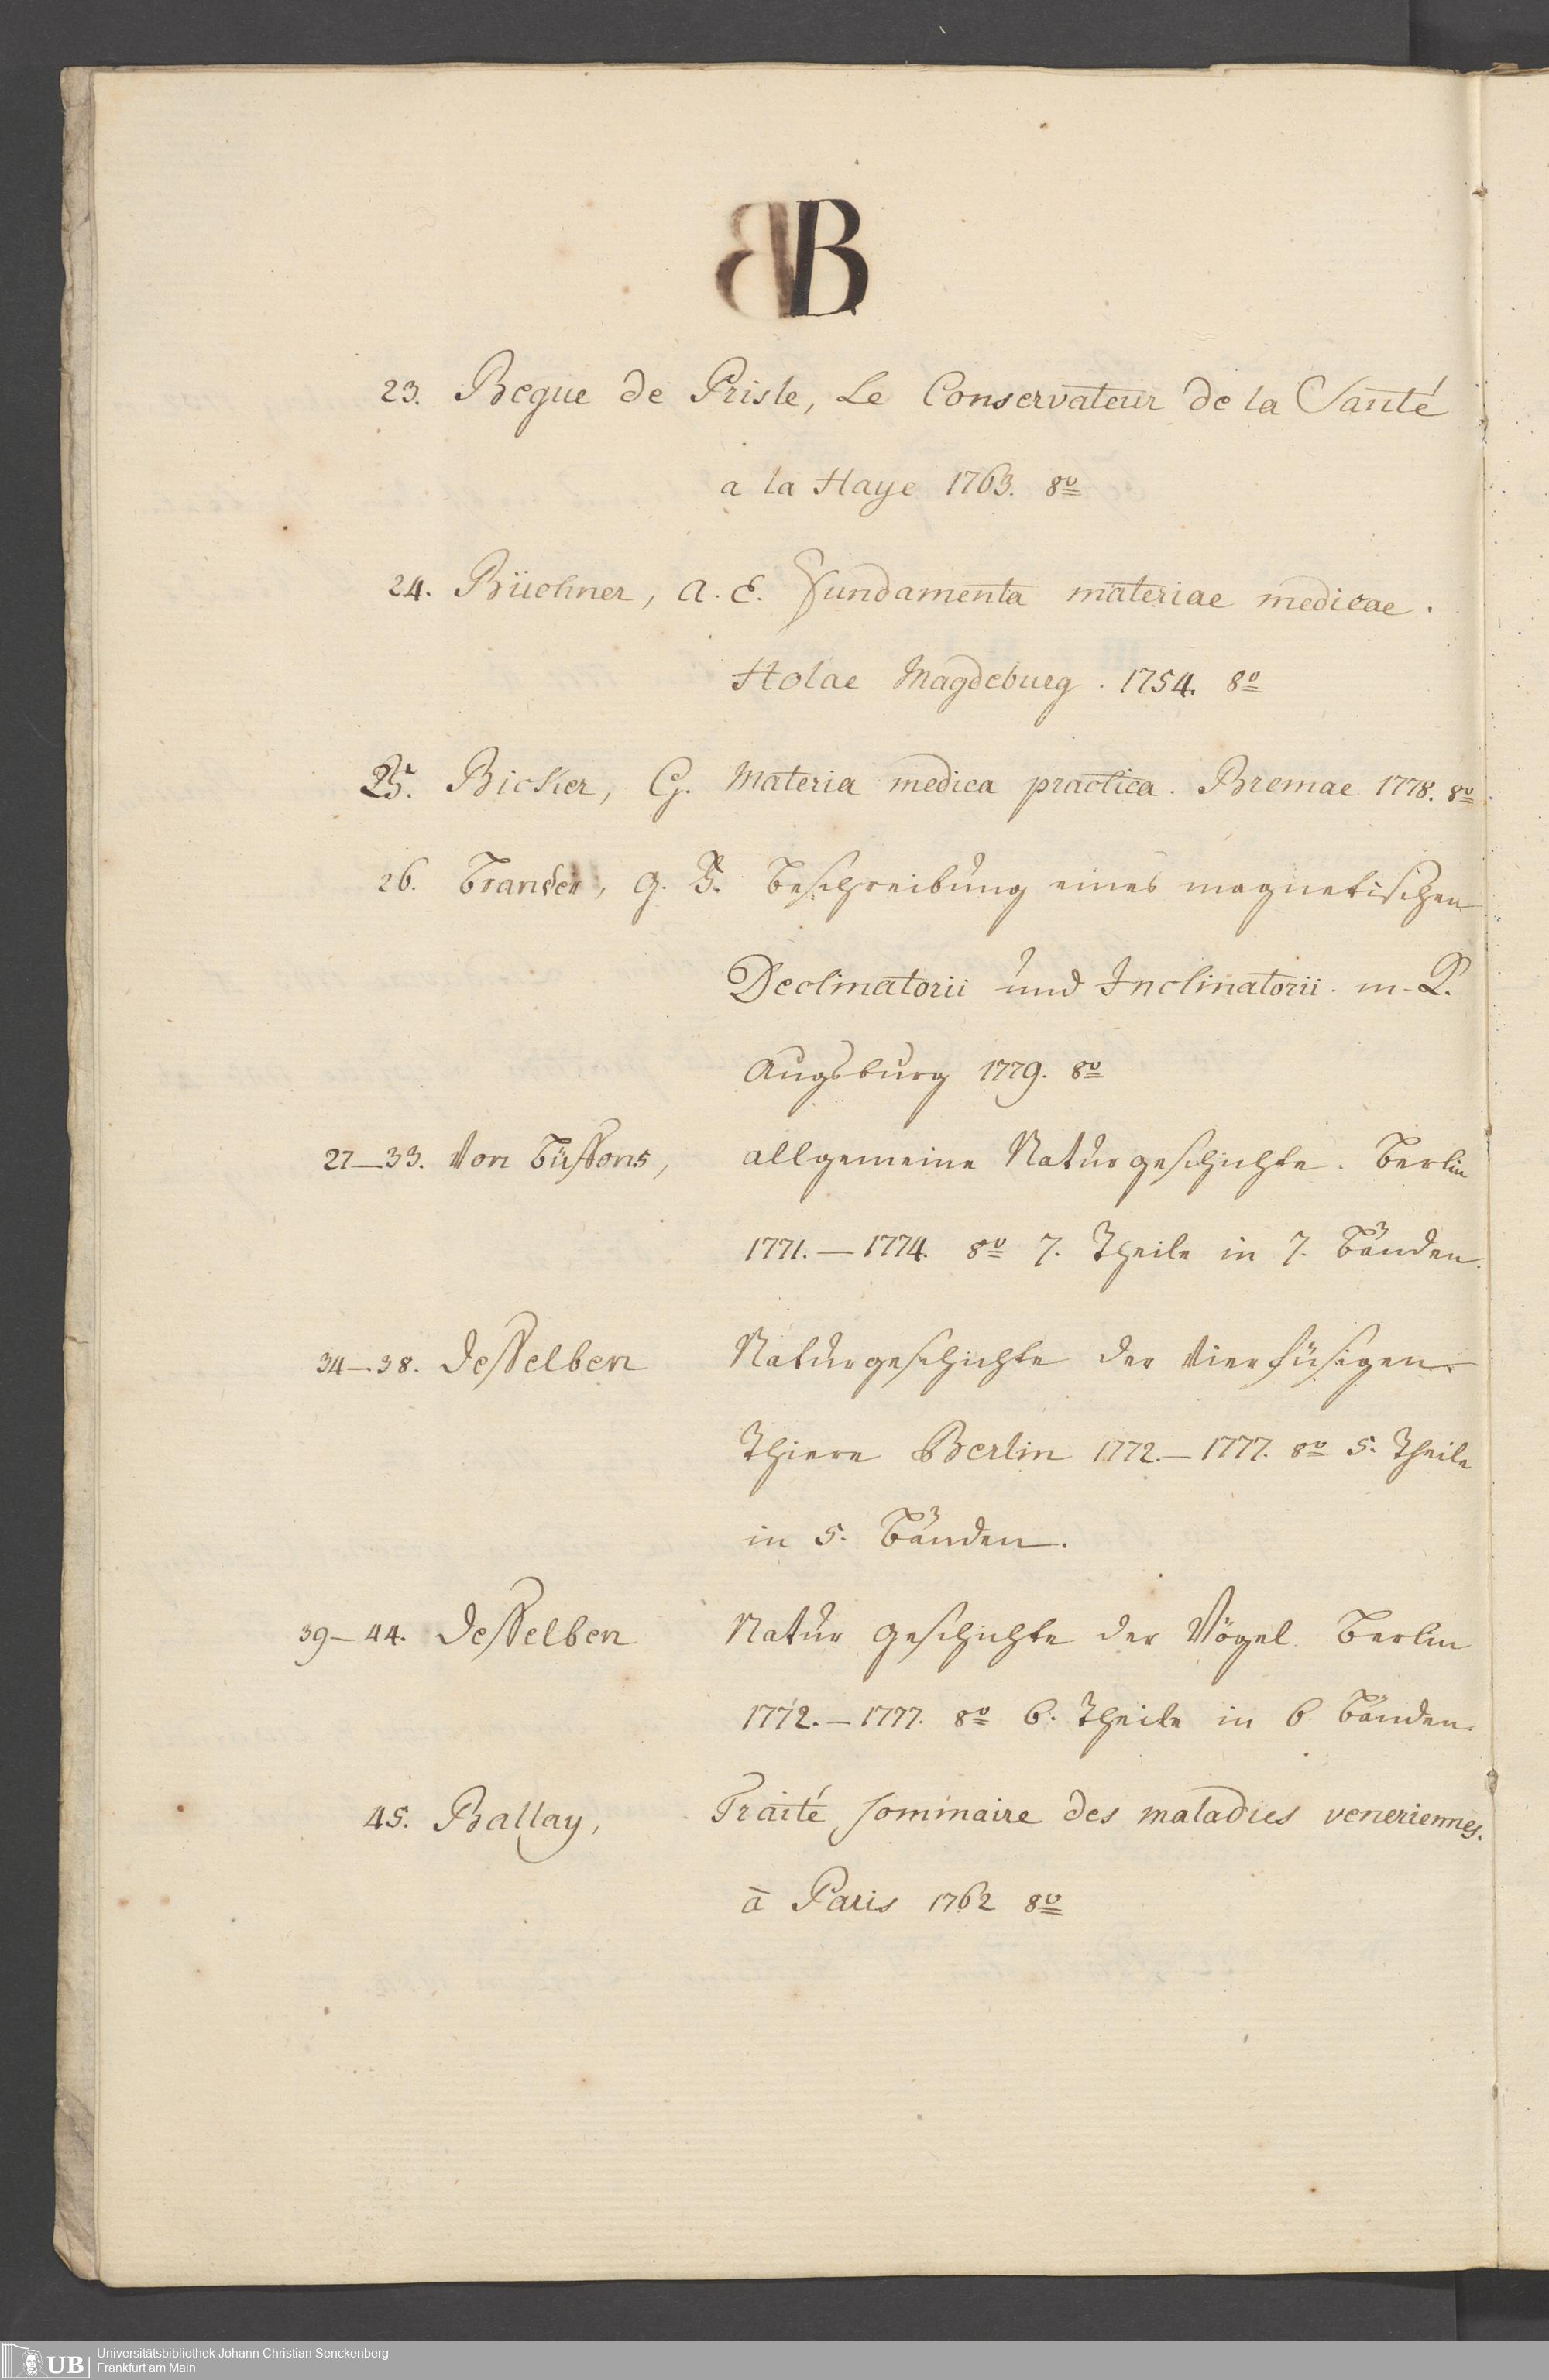 B
23. Begue de Prisle, Le Conservateur de la Santé
a la Haye 1763. 8º
24. Büchner, A. E. Fundamenta materiae medicae.
Holae Magdeburg. 1754. 8º
25. Bicker, G. Materia medica practica. Bremae 1778. 8º
26. Brander, G. F. Beschreibung eines magnetischen
Declinatorii und Inclinatorii. m. K.
Augsburg 1779. 8º
27–33. Von Büffons, allgemeine Naturgeschichte. Berlin
1771.–1774. 8º 7. Theile in 7. Bänden.
34–38. Desselben Naturgeschichte der Vierfüsigen
Thiere Berlin 1772.–1777. 8º 5. Theile
in 5. Bänden.
39–44. Desselben Natur geschichte der Vögel Berlin
1772.–1777. 8º 6. Theile in 6 Bänden.
45. Ballay, Traité sommaire des maladies veneriennes.
à Paris 1762 8º
UB
Universitätsbibliothek Johann Christian Senckenberg
Frankfurt am Main